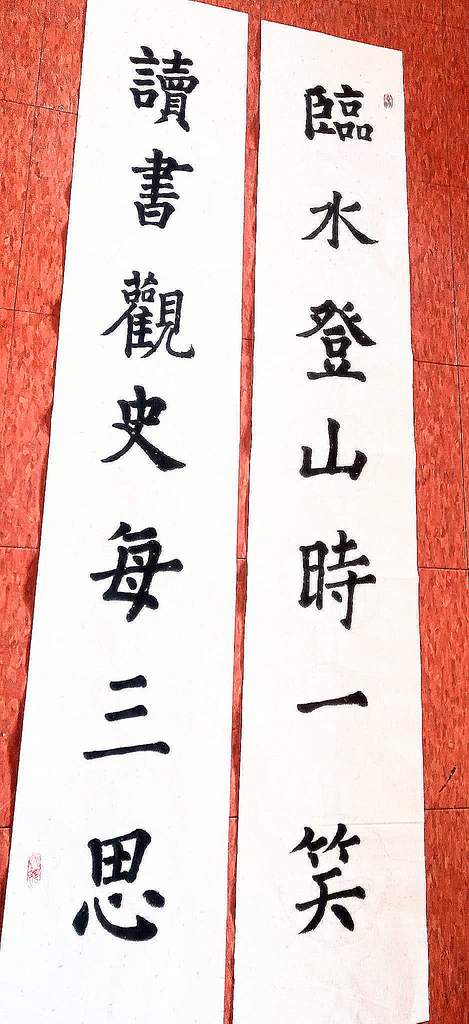 臨水登山時一笑
讀書觀史每三思